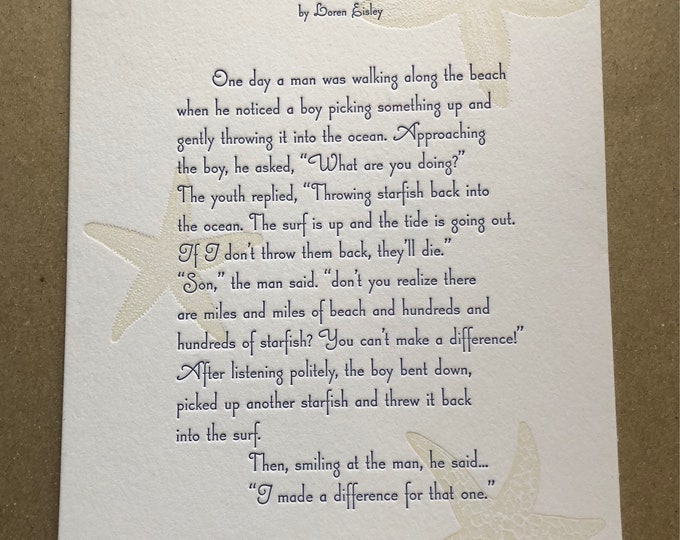 by Loren Eisley
One day a man was walking along the beach
when he noticed a boy picking something up and
gently throwing it into the ocean. Approaching
the boy, he asked, “What are you doing?”
The youth replied, “Throwing starfish back into
the ocean. The surf is up and the tide is going out.
If I don’t throw them back, they’ll die.”
“Son,” the man said. “don’t you realize there
are miles and miles of beach and hundreds and
hundreds of starfish? You can’t make a difference!”
After listening politely, the boy bent down,
picked up another starfish and threw it back
into the surf.
Then, smiling at the man, he said...
“I made a difference for that one.”